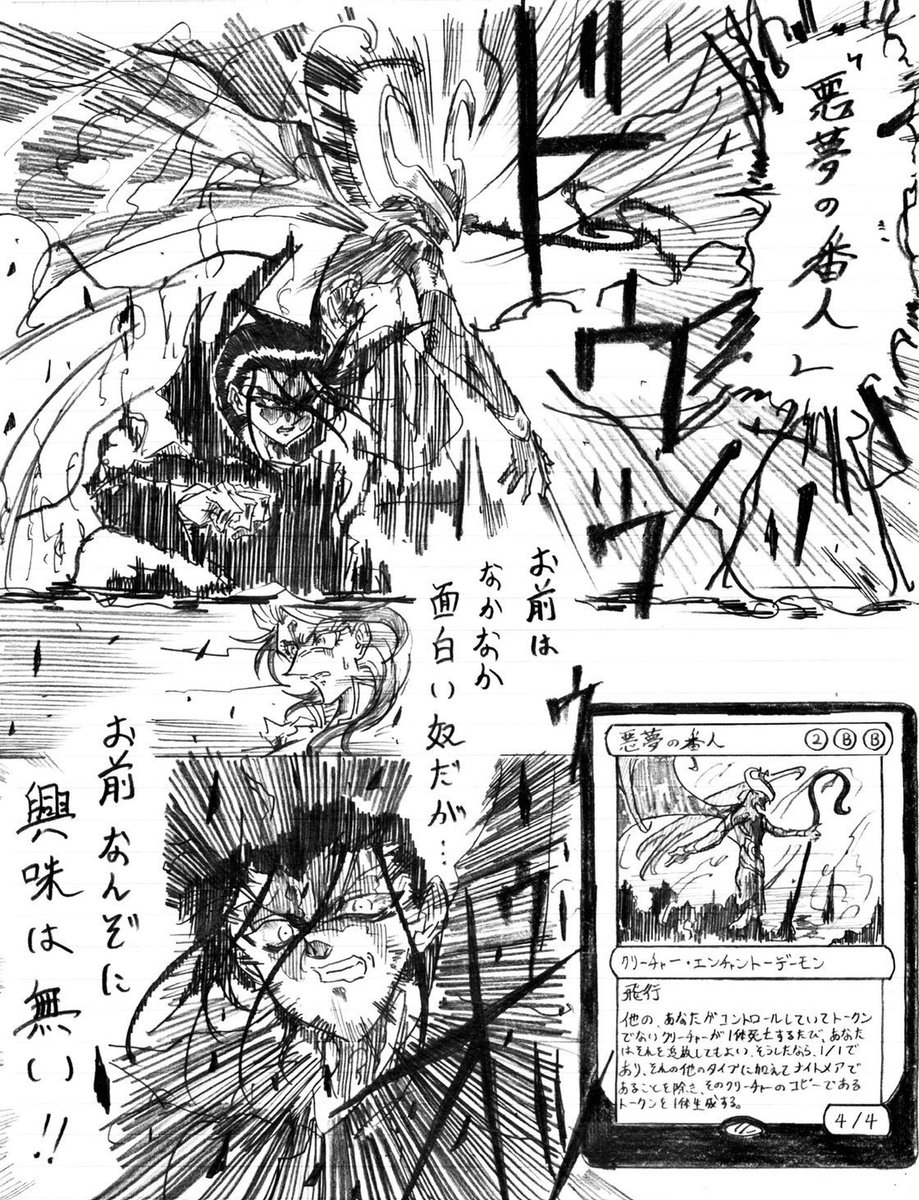 『悪夢の番人』
ドゥルルウゥ
お前は
なかなか
面白い奴だが…
お前なんぞに
興味は無い!!
悪夢の番人 ②ⒷⒷ
クリーチャー・エンチャントーデーモン
飛行
他の、あなたがコントロールしていてトークン
でないクリーチャーが1体死亡するたび、あなた
はそれを追放してもよい。そうしたなら、1/1で
あり、それの他のタイプに加えてナイトメアで
あることを除き、そのクリーチャーのコピーである
トークンを1体生成する。
4/4